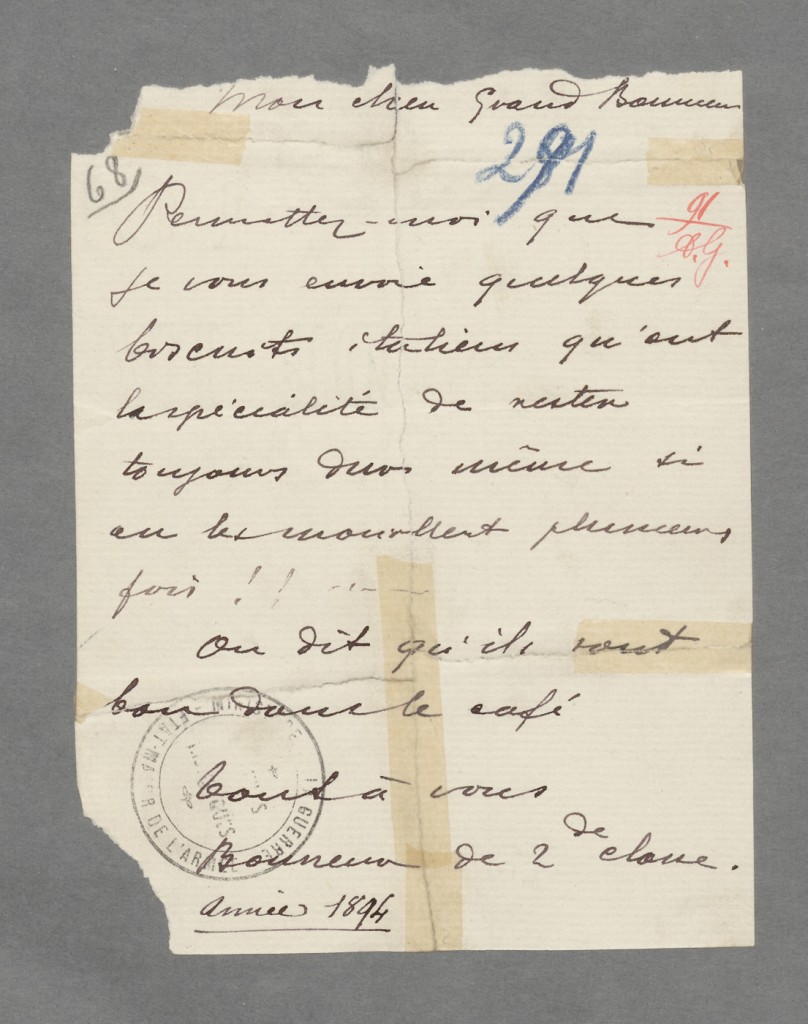 Mon cher Grand Bourreur
291
68
Permettez-moi que
91
A.G.
je vous envoie quelques
biscuits italiens qu'ont
la spécialité de rester
toujours durs même si
on les mouillent plusieurs
fois !!
On dit qu'ils sont
bon dans le café
tout à vous
Bourreur de 2de classe.
Année 1894
LA GUERRE
ÉTAT-MAJOR DE L'ARMÉE